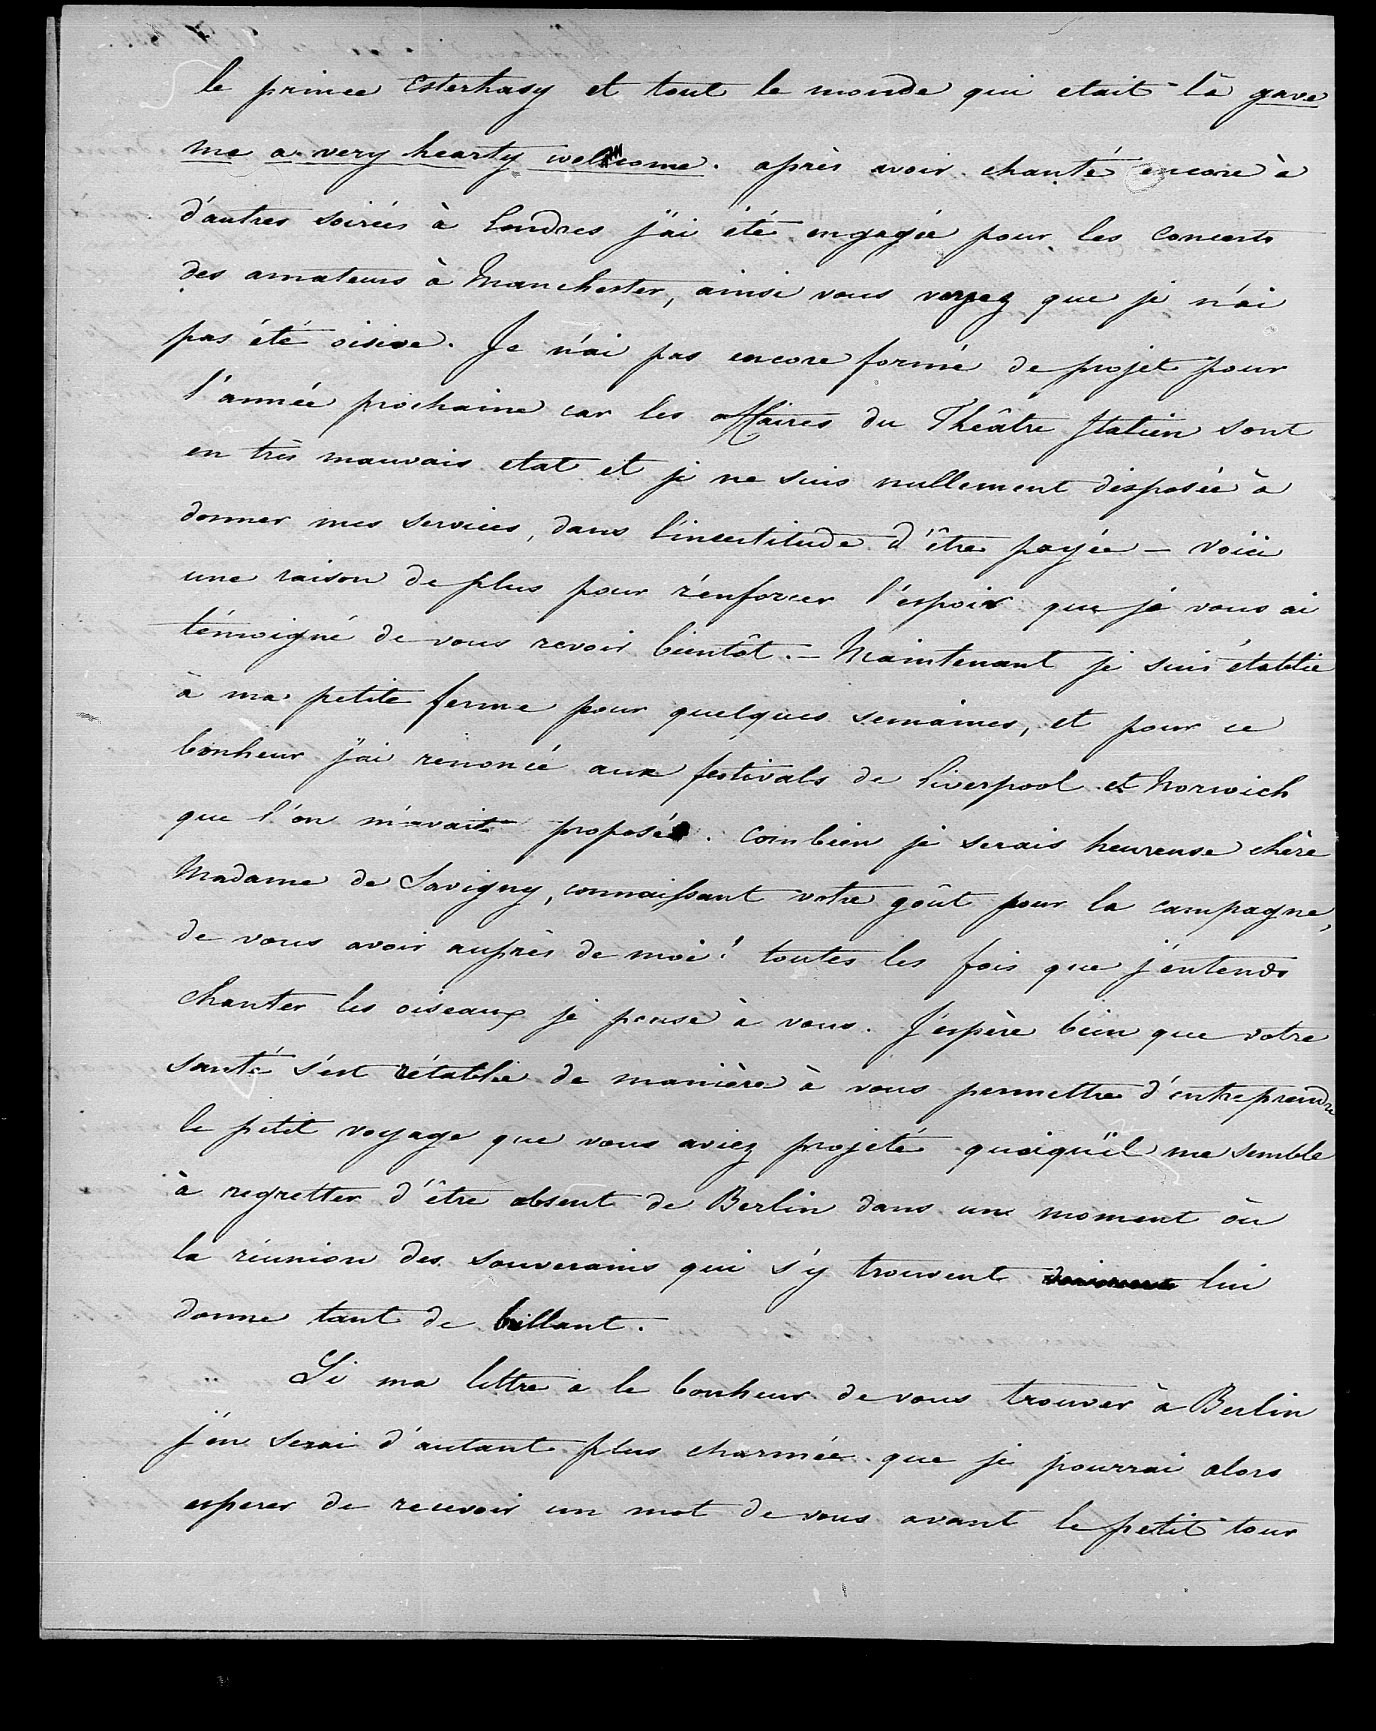 le prince Esterhasy et tout le monde qui etait là gave
me a very hearty wellcome. après avoir chanté encore à
d'autres soirées à Londres j'ai été engagée pour les concerts
des amateurs à Manchester, ainsi vous voyez que je n'ai
pas été oisive. Je n'ai pas encore formé de projet pour
l'année prochaine car les affaires du Théâtre Italien sont
en très mauvais etat et je ne suis nullement disposée à
donner mes services, dans l'incertitude d'être payée – voici
une raison de plus pour renforcer l'espoir que je vous ai
témoigné de vous revoir bientôt. – Maintenant je suis établie
à ma petite ferme pour quelques semaines, et pour ce
bonheur j'ai renoncé aux festivals de Liverpool et Norwich
que l'on m'avait proposé. combien je serais heureuse chère
Madame de Savigny, connaissant votre goût pour la campagne,
de vous avoir auprès de moi! toutes les fois que j'entends
chanter les oiseaux je pense à vous. J'espère bien que votre
santé s'est rétablie de manière à vous permettre d'entreprendre
le petit voyage que vous aviez projeté quoiqu'il me semble
à regretter d'être absent de Berlin dans un moment où
la réunion des souverains qui s'y trouvent lui
donne tant de billant.
Si ma lettre a le bonheur de vous trouver à Berlin
j'en serai d'autant plus charmée que je pourrai alors
esperer de recevoir un mot de vous avant le petit tour